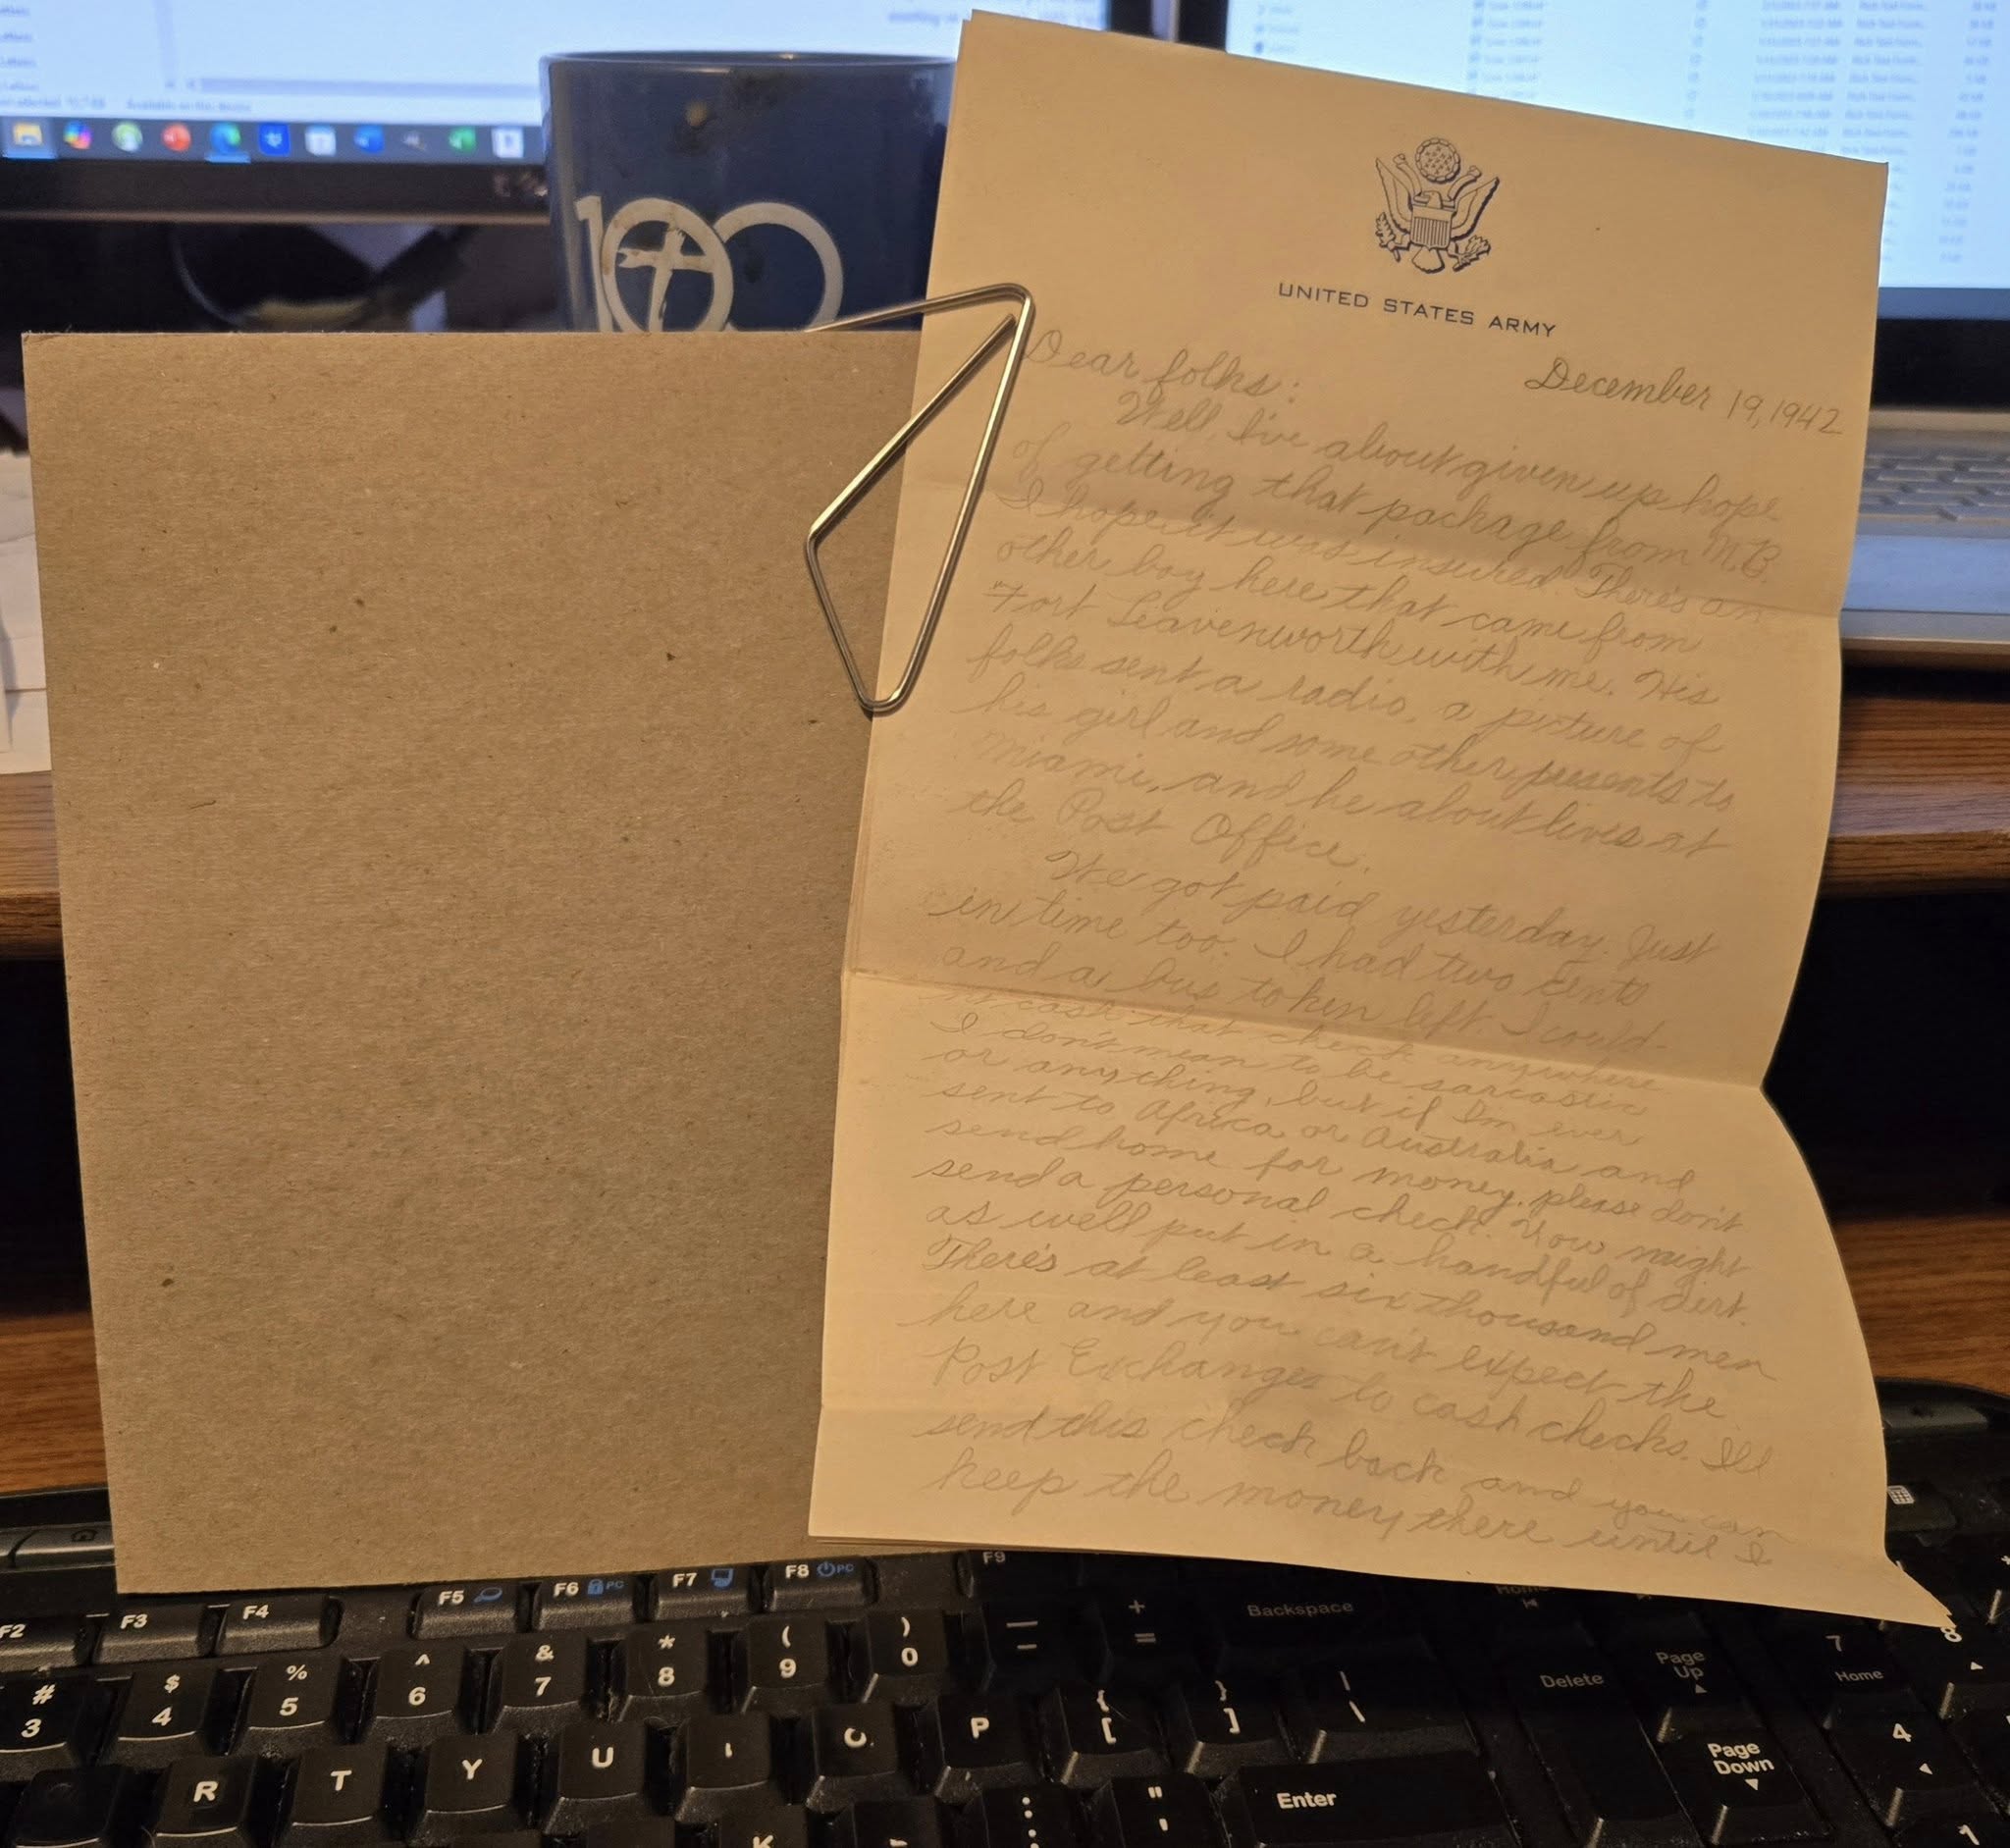 100
UNITED STATES ARMY
December 19, 1942
Dear folks:
Well, I've about given up hope
of getting that package from M.B.
I hope it was insured. There's an
other boy here that came from
Fort Leavenworth with me. His
folks sent a radio, a picture of
his girl and some other presents to
Miami, and he about lives at
the Post Office.
We got paid yesterday. Just
in time too. I had two cents
and a bus token left. I could-
n't cash that check anywhere
I don't mean to be sarcastic
or anything, but if I'm ever
sent to Africa or Australia and
send home for money, please don't
send a personal check. You might
as well put in a handful of dirt.
There's at least six thousand men
here and you can't expect the
Post Exchanges to cash checks. I'll
send this check back and you can
keep the money there until I
F2 F3 F4 F5 F6 PC F7 F8 PC F9
# 3 $ 4 % 5 ^ 6 & 7 * 8 ( 9 ) 0 — - + = Backspace Home 7 Home 8
R T Y U I O P { [ } ] | \ Delete Page Up Page Down 4
K : ; " ' Enter 1